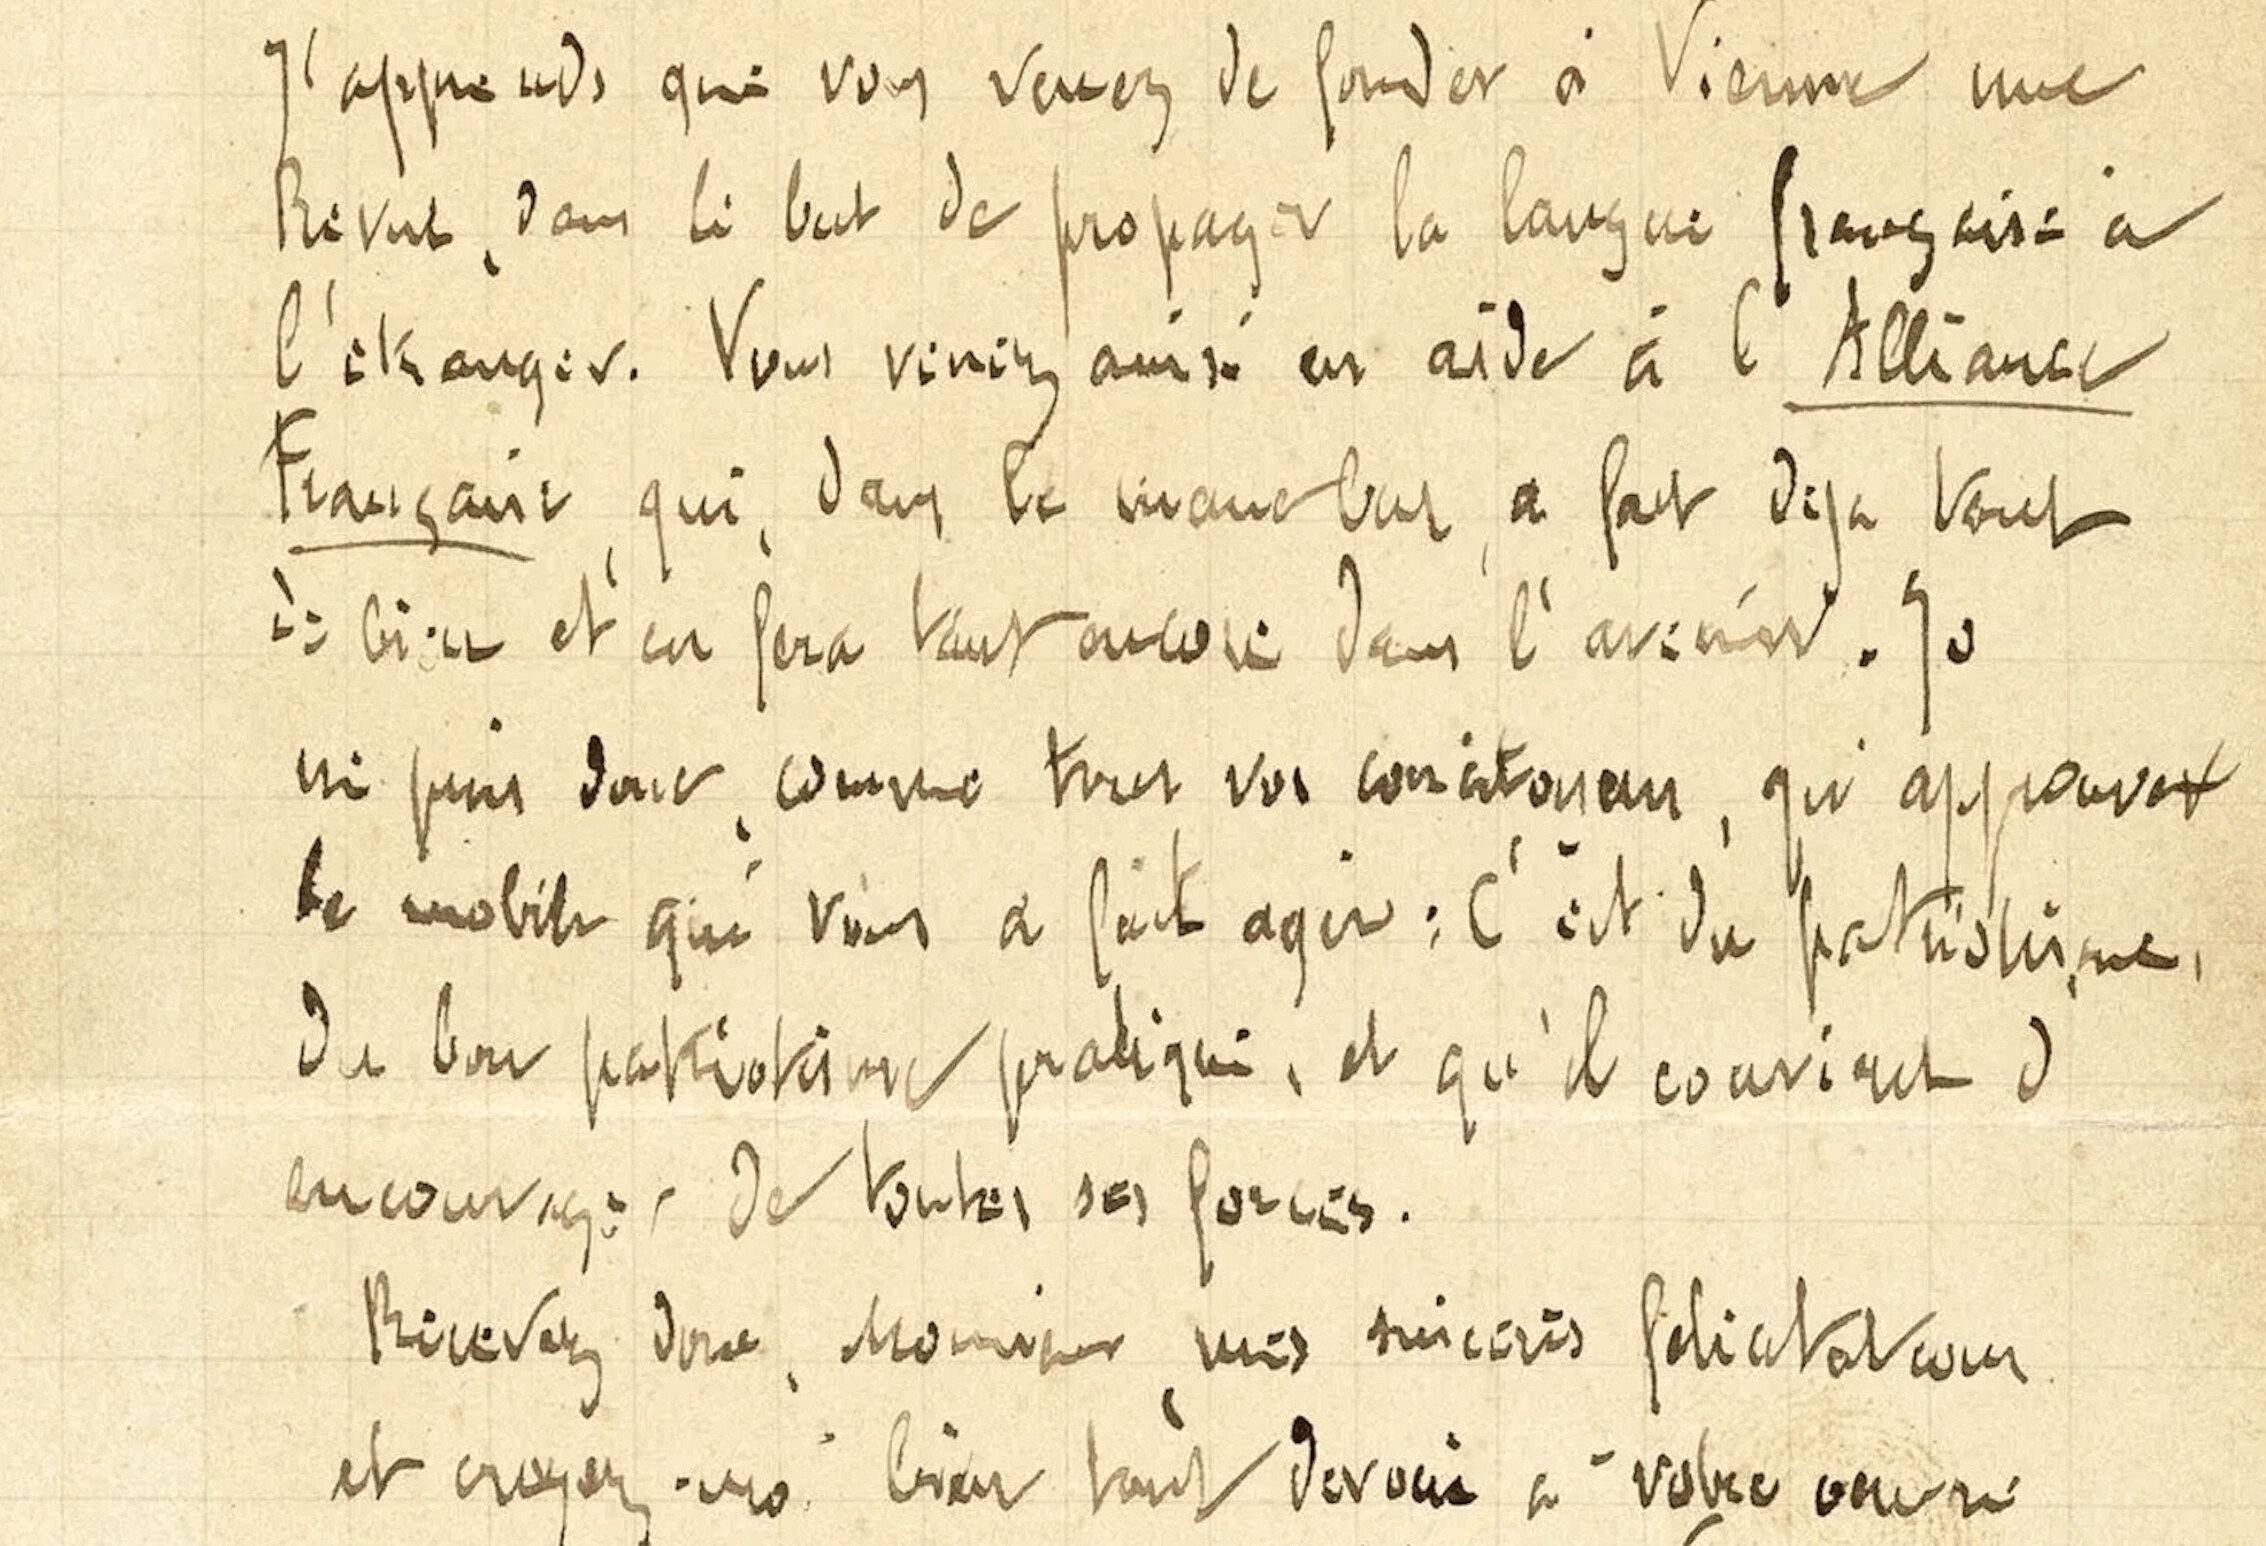 J'apprends que vous venez de fonder à Vienne une
Revue, dans le but de propager la langue française à
l'étranger. Vous venez ainsi en aide à l'Alliance
Française, qui, dans le même but, a fait déjà tant
de bien et en fera tant encore dans l'avenir. Je
ne puis donc, comme tous vos concitoyens, qu'approuver
le mobile qui vous a fait agir : C'est du patriotisme,
du bon patriotisme pratique, et qu'il convient d
encourager de toutes ses forces.
Recevez donc, Monsieur, mes sincères félicitations
et croyez-moi bien tout dévoué à votre œuvre